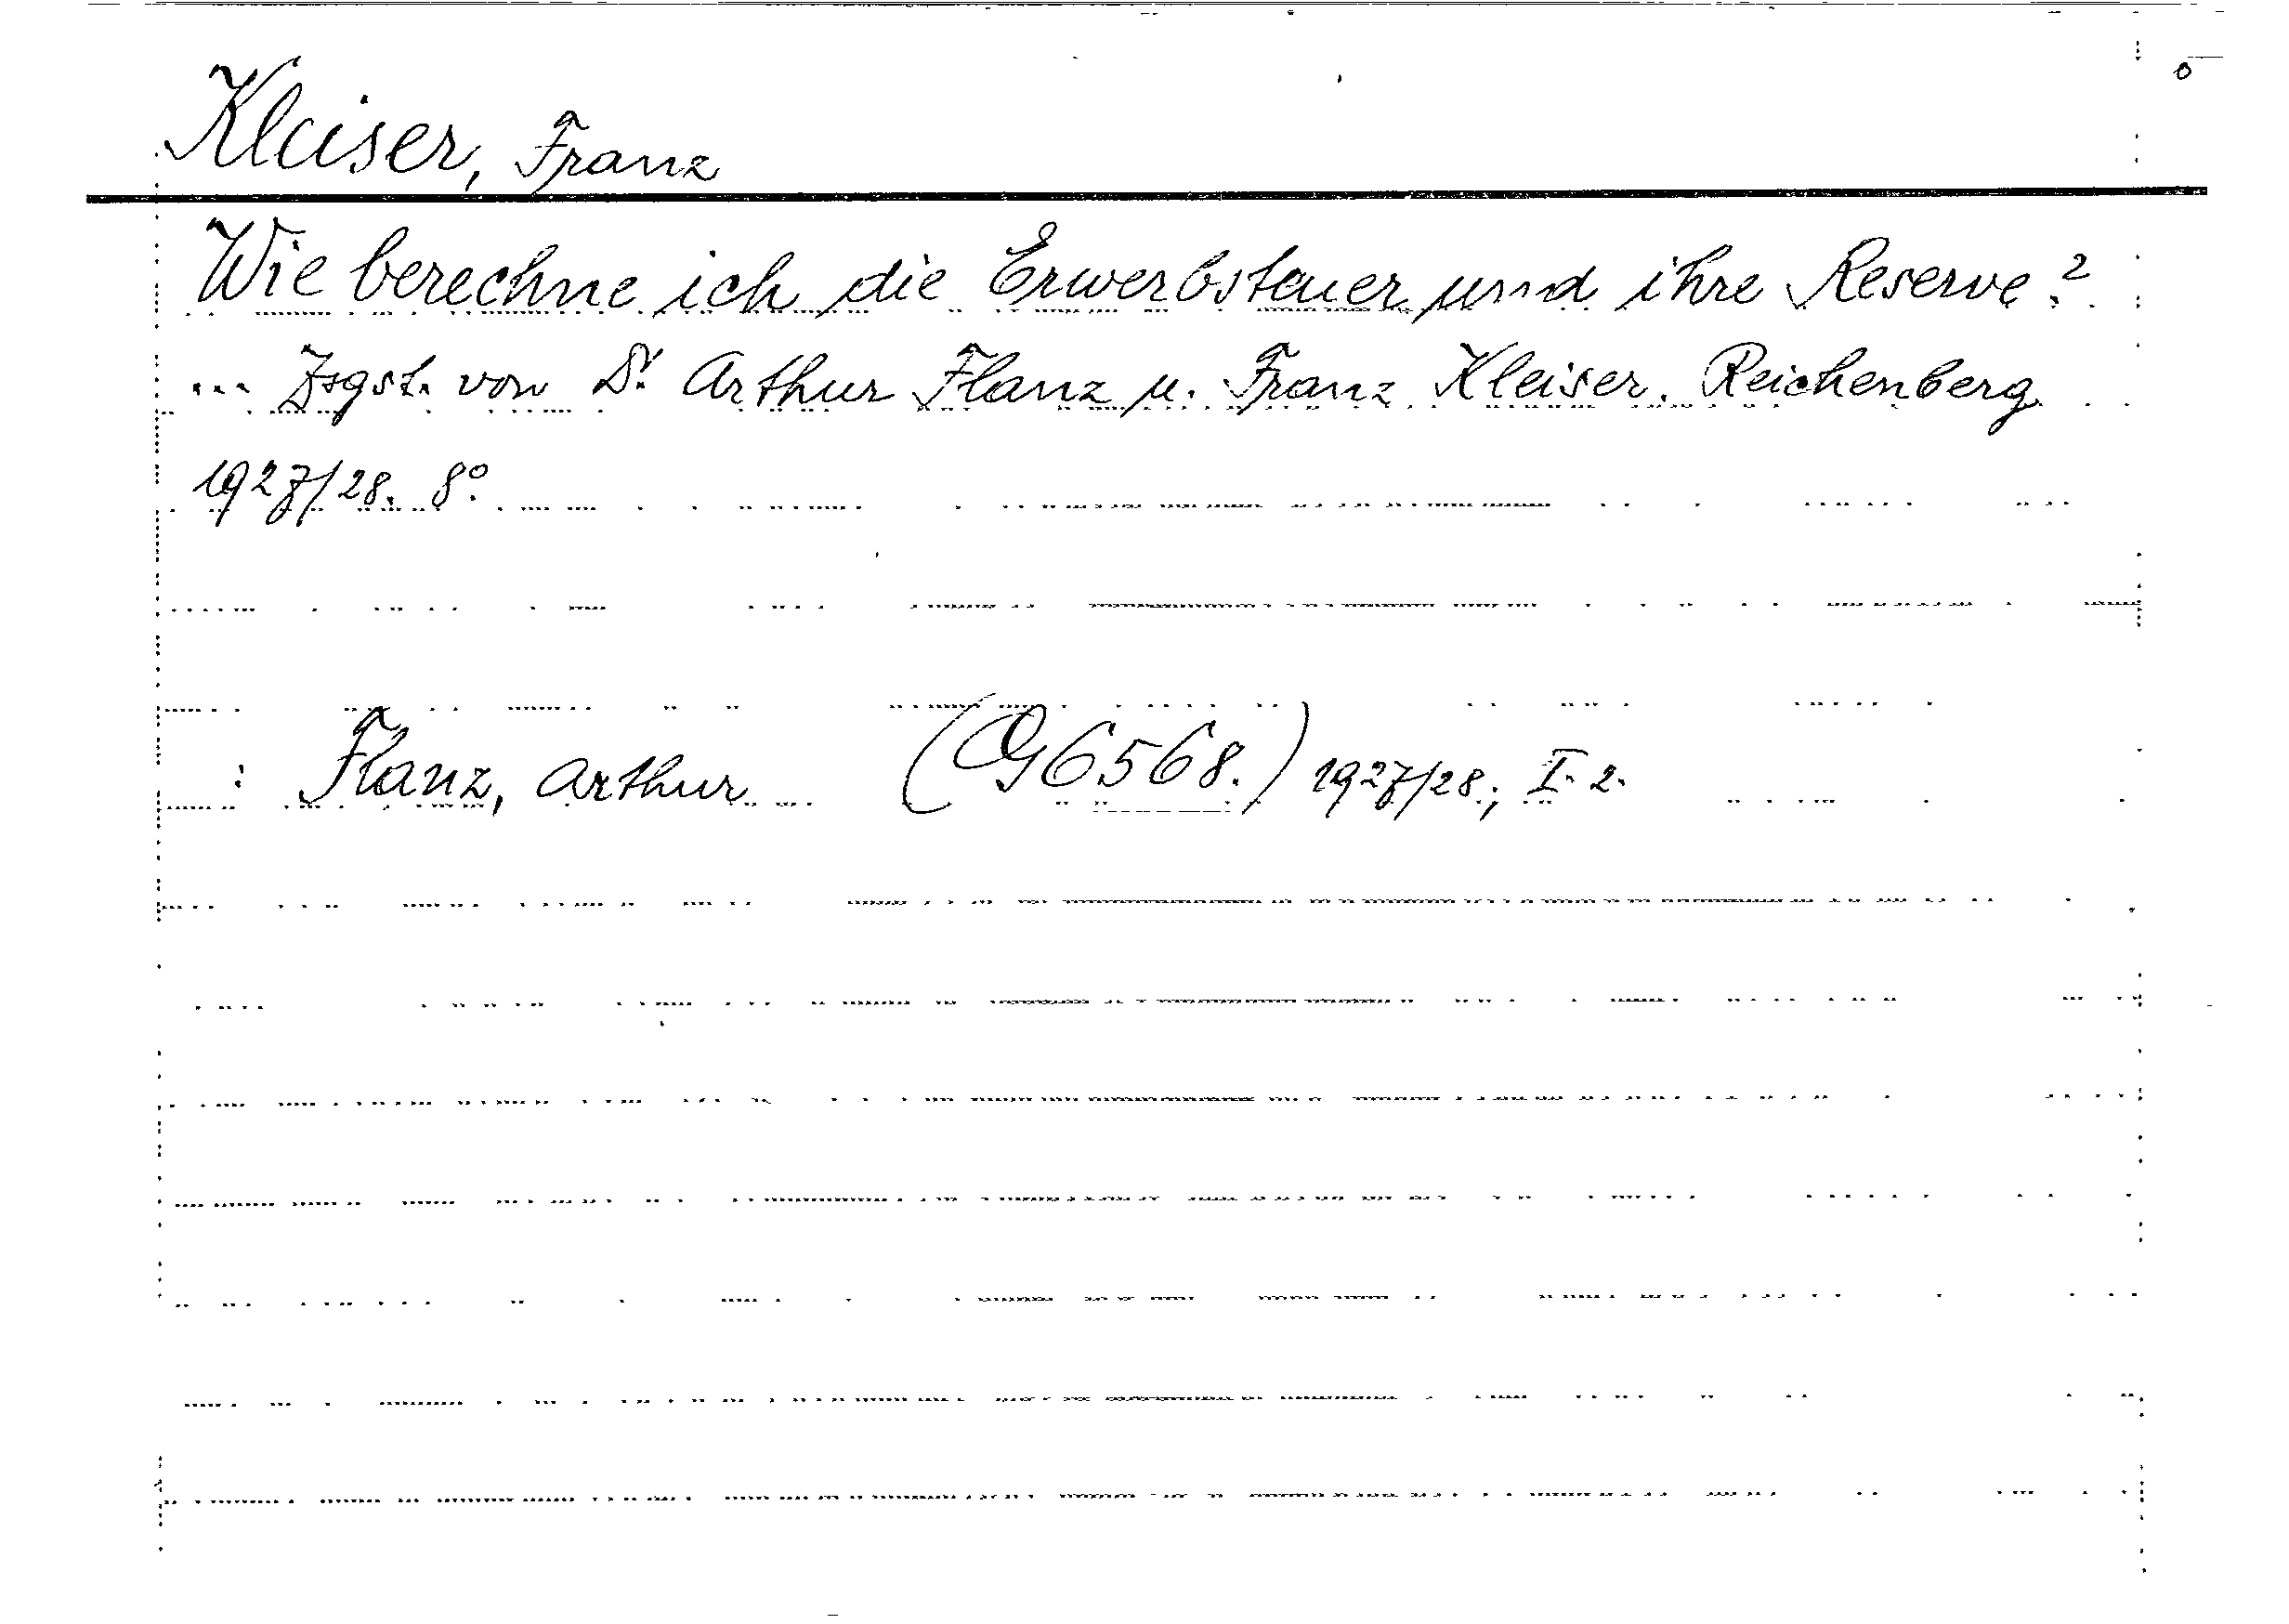 Kleiser, Franz
Wie berechne ich die Erwerbsteuer und ihre Reserve?
... Zsgst. von Dr. Arthur Flanz u. Franz Kleiser. Reichenberg
1927/28. 8°.
: Flanz, Arthur (G 6568.) 1927/28; I. 2.